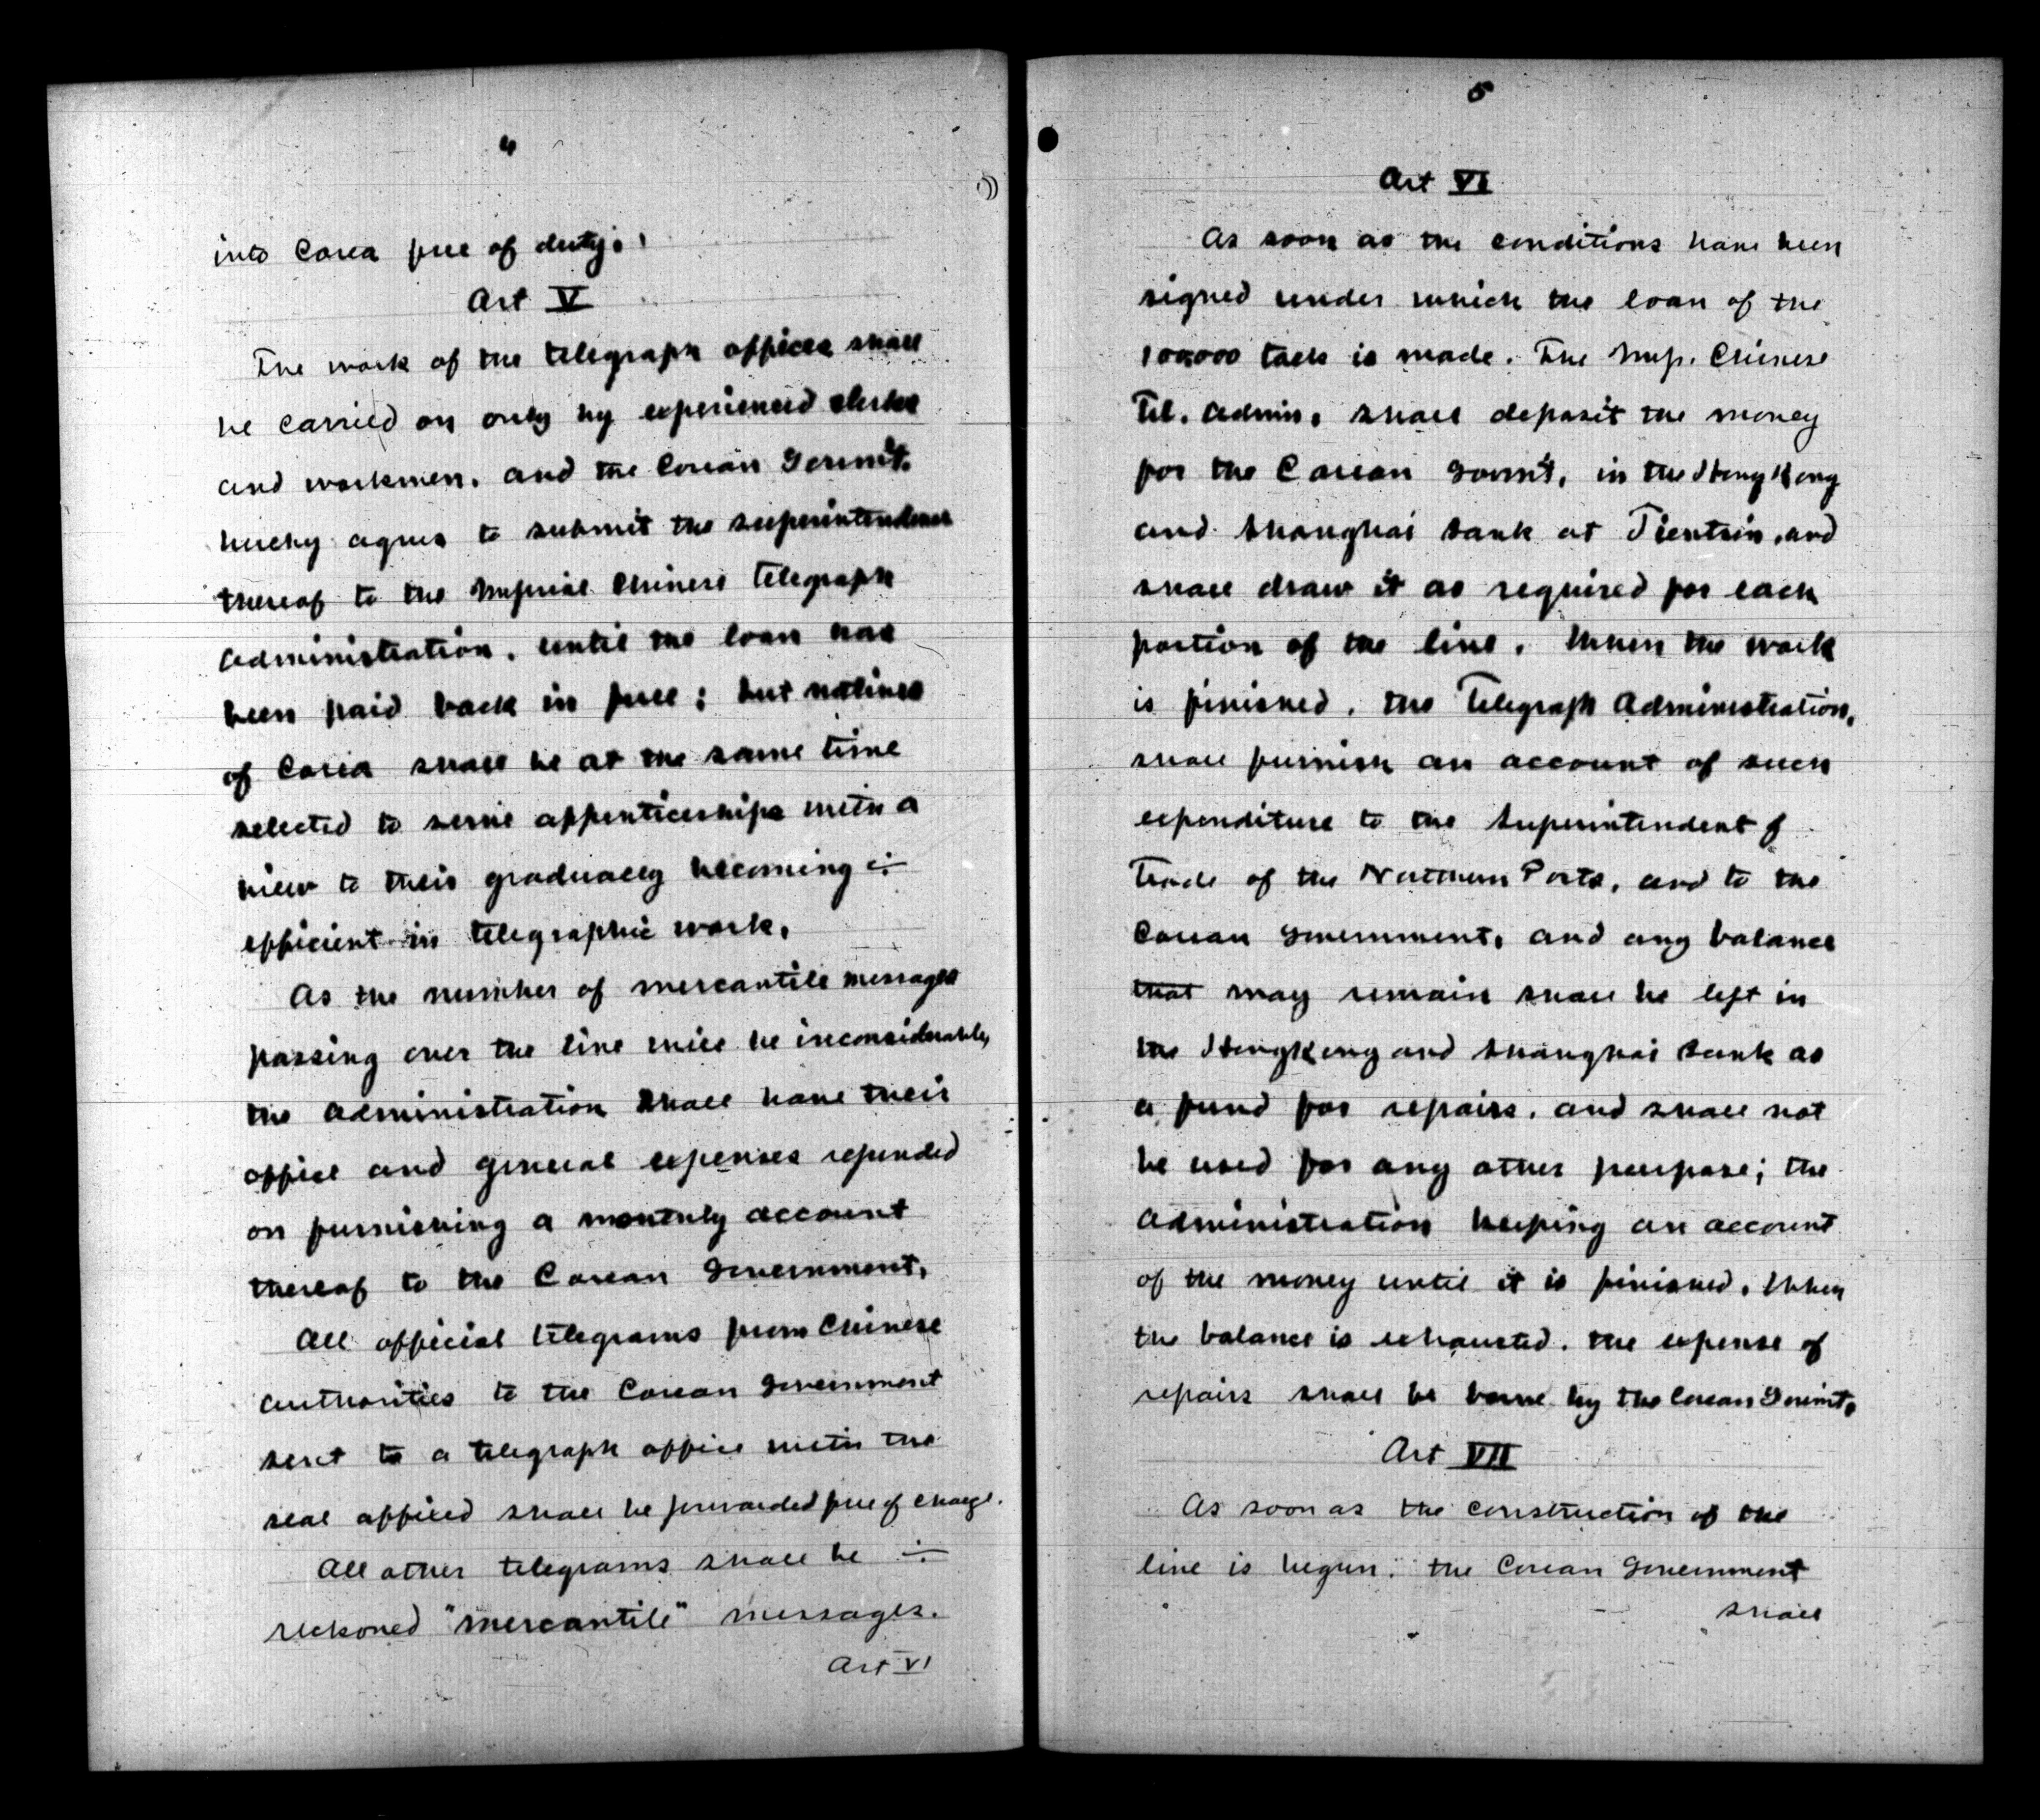 4
into Corea free of duty.
Art V
The work of the telegraph offices shall
be carried on only by experienced clerks
and workmen, and the Corean Governt.
hereby agrees to submit the superintendence
thereof to the Imperial Chinese Telegraph
Administration, until the loan has
been paid back in full; but natives
of Corea shall be at the same time
selected to serve apprenticeships with a
view to their gradually becoming
efficient in telegraphic work.
As the number of mercantile messages
passing over the line will be inconsiderable,
the Administration shall have their
office and general expenses refunded
on furnishing a monthly account
thereof to the Corean Government.
All official telegrams from Chinese
authorities to the Corean Government
sent to a telegraph office with the
seal affixed shall be forwarded free of charge.
All other telegrams shall be
reckoned "mercantile" messages.
Art VI
5
Art VI
As soon as the conditions have been
signed under which the loan of the
100,000 taels is made. The Imp. Chinese
Tel. Admin. shall deposit the money
for the Corean Govm't, in the HongKong
and Shanghai Bank at Tientsin, and
shall draw it as required for each
portion of the line. When the work
is finished, the Telegraph Administration,
shall furnish an account of such
expenditure to the Superintendent of
Trade of the Northern Ports, and to the
Corean Government, and any balance
that may remain shall be left in
the HongKong and Shanghai Bank as
a fund for repairs, and shall not
be used for any other purpose; the
Administration keeping an account
of the money until it is finished. When
the balance is exhausted, the expense of
repairs shall be borne by the Corean Governt.
Art VII
As soon as the construction of the
line is begun, the Corean Government
shall